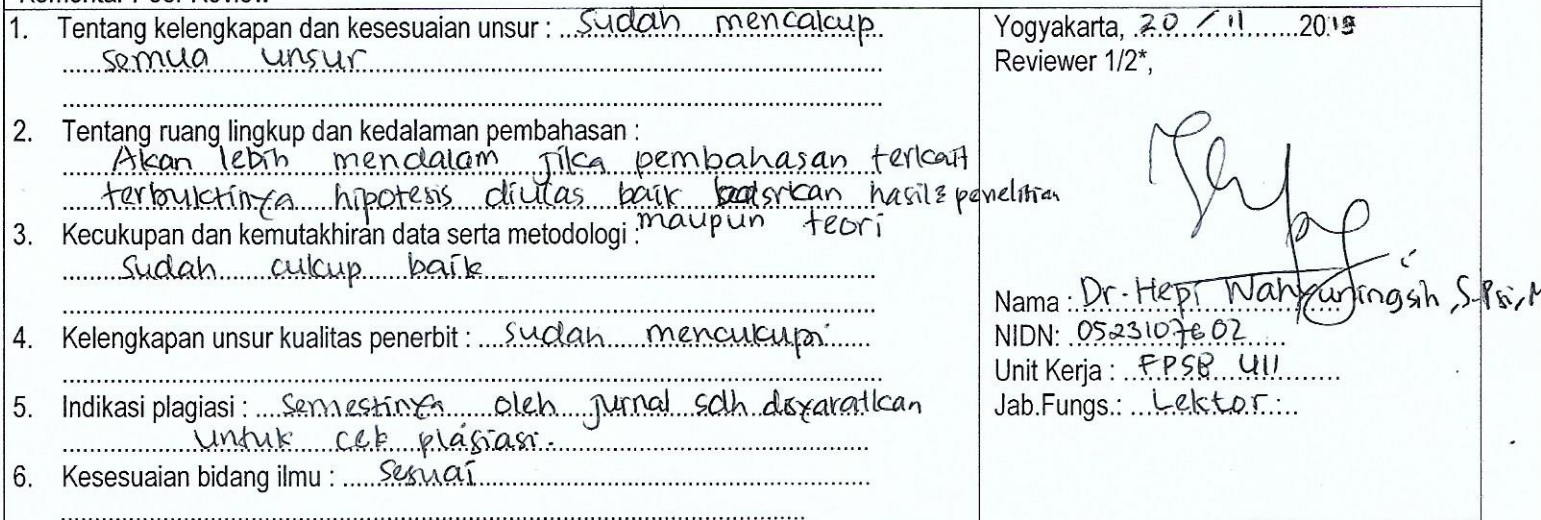 1. Tentang kelengkapan dan kesesuaian unsur : Sudah mencakup
semua unsur
2. Tentang ruang lingkup dan kedalaman pembahasan :
Akan lebih mendalam jika pembahasan terkait
terbuktinya hipotesis diulas baik hasil2 penelitian
maupun teori
3. Kecukupan dan kemutakhiran data serta metodologi :
Sudah cukup baik
4. Kelengkapan unsur kualitas penerbit : Sudah mencukupi
5. Indikasi plagiasi : Semestinya oleh jurnal sdh disyaratkan
untuk cek plagiasi.
6. Kesesuaian bidang ilmu : Sesuai
Yogyakarta, 20 / 11 2019
Reviewer 1/2*,
Nama : Dr. Hepi Wahyuningsih, S.Psi, M
NIDN: 0523107602
Unit Kerja : FPSB UII
Jab.Fungs.: Lektor